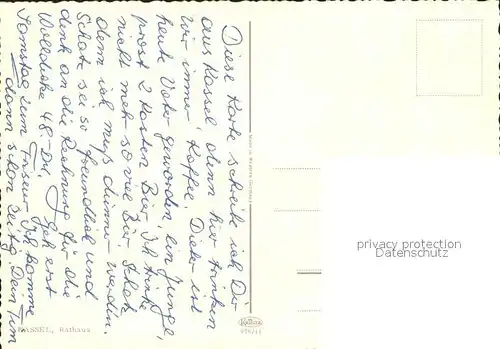 Diese Karte schreib ich Dir
aus Kassel denn hier trinken
wir immer Kaffee. Dieter ist
heute Vater geworden, ein Junge,
prost 2 Kasten Bier. Ich trink
nicht mehr so viel Bir, Schatz
denn ich muß dünner werden.
Schatz sei so freundlich und
denk an die Rechnung für die
Wolldecke 48.-DM. Geh erst
Samstag zum Friseur. Ich komme
dann schon Dein Tim
KASSEL, Rathaus
privacy protection
Datenschutz